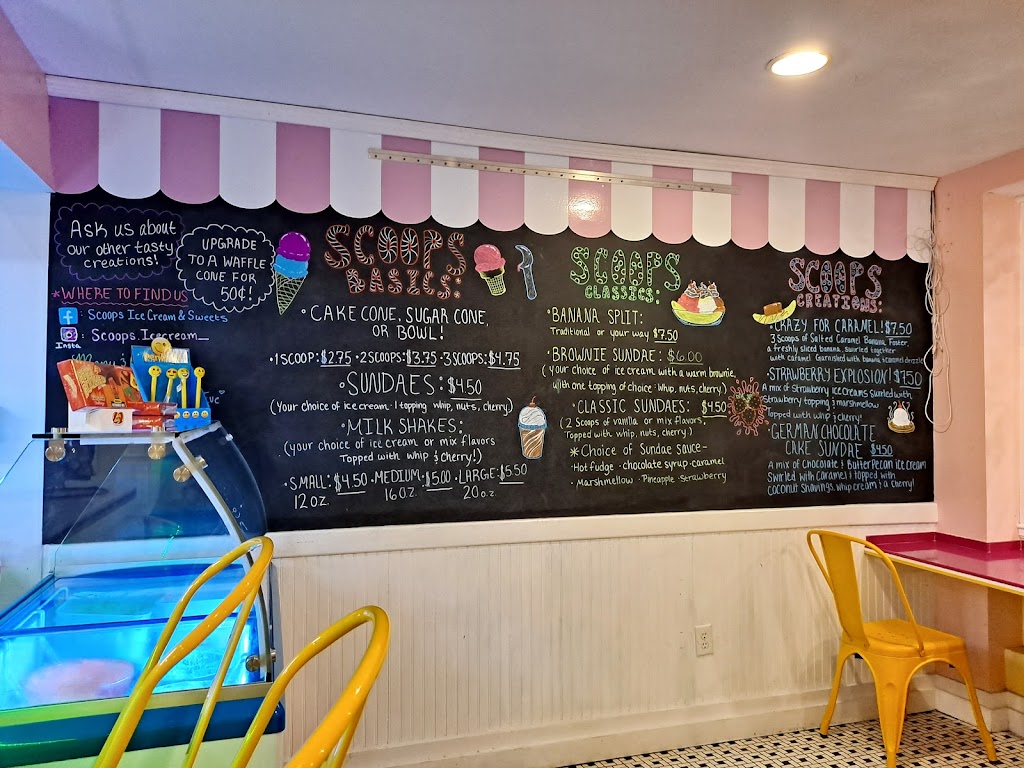 Ask us about
our other tasty
creations!
UPGRADE
TO A WAFFLE
CONE FOR
50¢!
*WHERE TO FIND US
f : Scoops Ice Cream & Sweets
: Scoops.Icecream_
Insta
SCOOPS
BASICS:
• CAKE CONE, SUGAR CONE,
OR BOWL!
• 1 SCOOP: $2.75 • 2 SCOOPS: $3.75 • 3 SCOOPS: $4.75
• SUNDAES: $4.50
(Your choice of ice cream • 1 topping • whip, nuts, cherry)
• MILK SHAKES:
(your choice of ice cream or mix flavors
Topped with whip & Cherry!)
• SMALL: $4.50 • MEDIUM: $5.00 • LARGE: $5.50
12 oz. 16 oz. 20 oz.
SCOOPS
CLASSICS:
• BANANA SPLIT:
Traditional or your way $7.50
• BROWNIE SUNDAE: $6.00
(your choice of ice cream with a warm brownie,
with one topping of choice • whip, nuts, cherry)
• CLASSIC SUNDAES: $4.50
(2 Scoops of vanilla or mix flavors,
Topped with whip, nuts, cherry)
* Choice of Sundae sauce -
• Hot fudge • chocolate syrup • caramel
• Marshmellow • Pineapple • Strawberry
SCOOPS
CREATIONS:
• CRAZY FOR CARAMEL! $7.50
3 Scoops of Salted Caramel Banana Foster,
a freshly sliced banana, swirled together
with caramel. Garnished with banana & caramel drizzle
• STRAWBERRY EXPLOSION! $7.50
A mix of Strawberry ice creams swirled with
Strawberry topping & marshmellow
Topped with whip & cherry!
• GERMAN CHOCOLATE
CAKE SUNDAE $4.50
A mix of Chocolate & Butter Pecan ice cream
Swirled with Caramel & topped with
Coconut Shavings, whip cream & a Cherry!